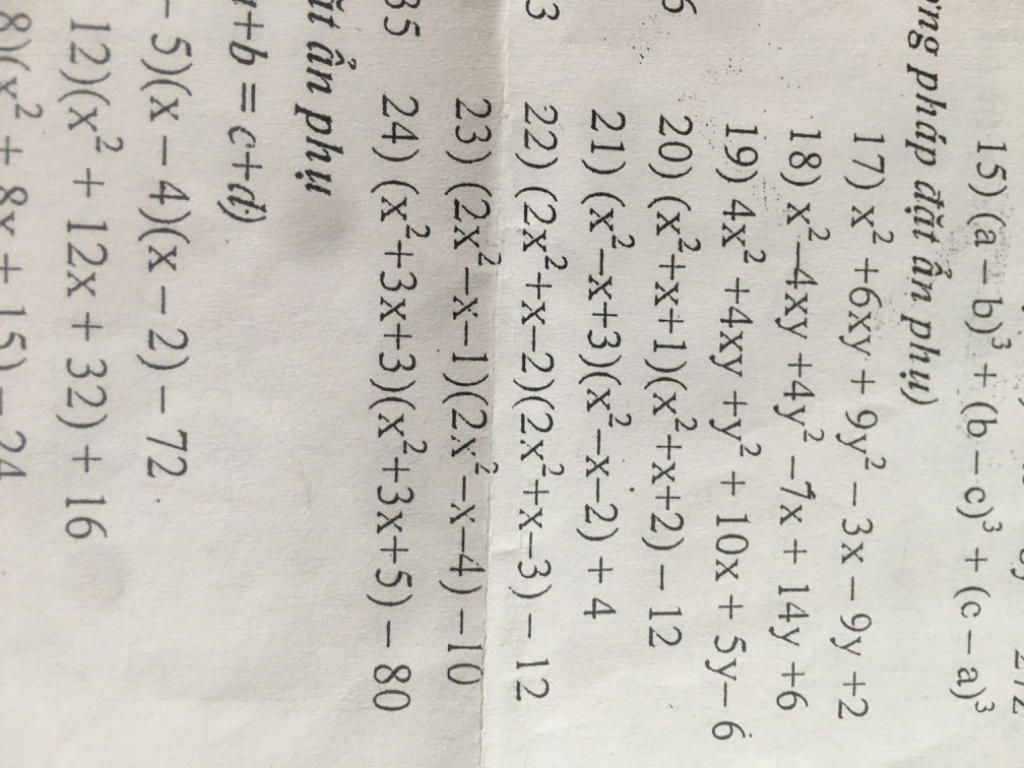 15) (a – b)³ + (b – c)³ + (c – a)³
pháp đặt ẩn phụ)
17) x² +6xy + 9y² – 3x – 9y +2
18) x²–4xy +4y² –7x + 14y +6
19) 4x² +4xy +y² + 10x + 5y– 6
20) (x²+x+1)(x²+x+2) – 12
21) (x²–x+3)(x²–x–2) + 4
22) (2x²+x–2)(2x²+x–3) – 12
23) (2x²–x–1)(2x²–x–4) –10
24) (x²+3x+3)(x²+3x+5) – 80
ẩn phụ
+b = c+d)
– 5)(x – 4)(x – 2) – 72
12)(x² + 12x + 32) + 16
8)(x² + 8x + 15) – 24